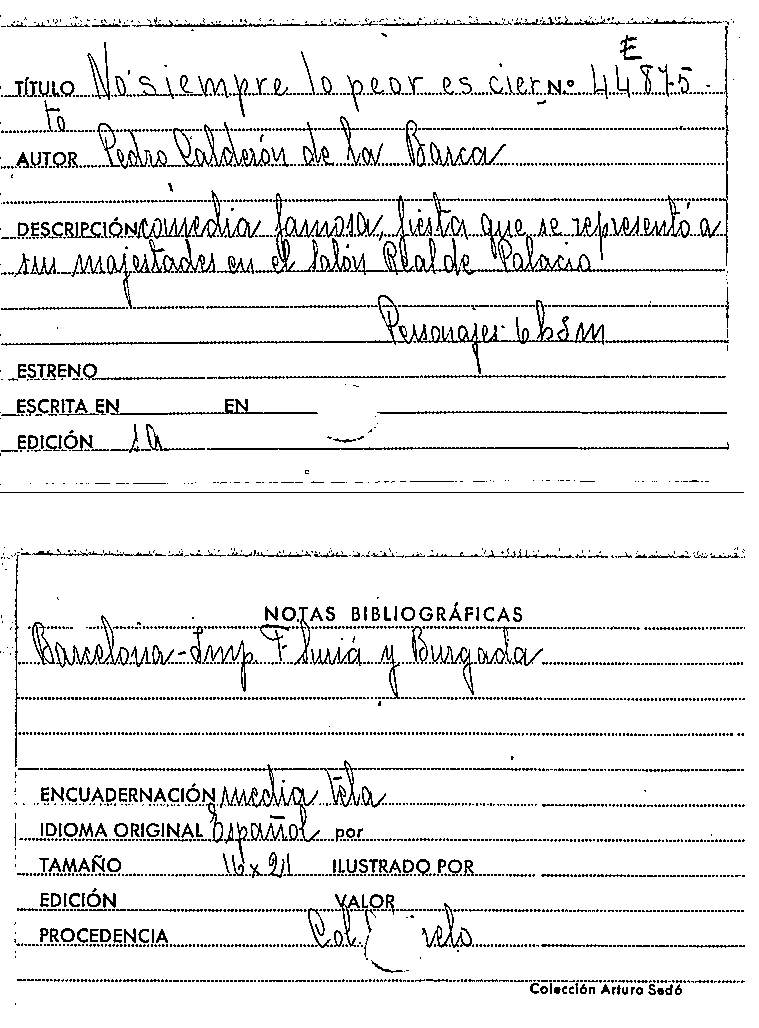 E
TÍTULO No siempre lo peor es cier N.º 44875
to
AUTOR Pedro Calderón de la Barca
DESCRIPCIÓN comedia famosa, fiesta que se representó a
sus majestades en el Salón Real de Palacio
Personajes 6 h 3 m
ESTRENO
ESCRITA EN EN
EDICIÓN 1a
NOTAS BIBLIOGRÁFICAS
Barcelona-Imp. y Burgada
ENCUADERNACIÓN media tela
IDIOMA ORIGINAL Español por
TAMAÑO 16 x 21 ILUSTRADO POR
EDICIÓN VALOR
PROCEDENCIA Col.
Colección Arturo Sedó